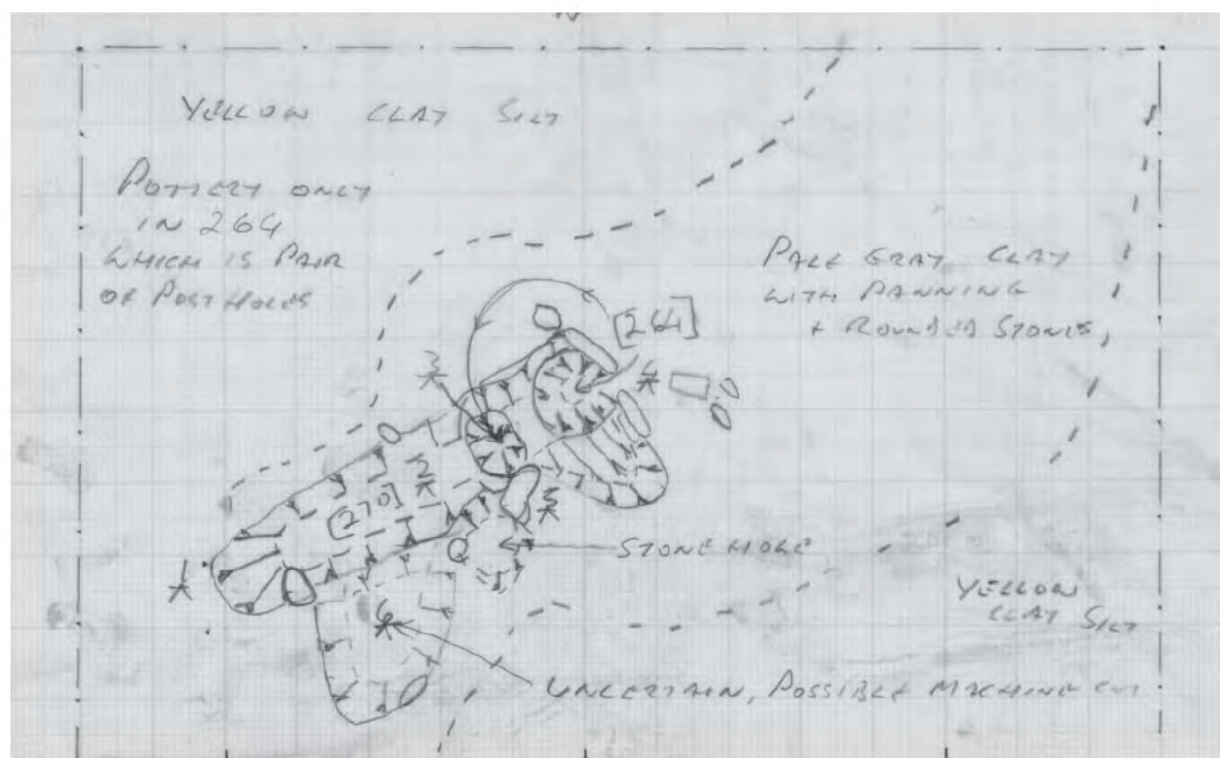 N
YELLOW CLAY SILT
POTTERY ONLY
IN 264
WHICH IS PAIR
OF POST HOLES
PALE GRAY CLAY
WITH PANNING
+ ROUNDED STONES,
[264]
3
4
2
[270]
5
1
STONE HOLE
6
YELLOW
CLAY SILT
UNCERTAIN, POSSIBLE MACHINE CUT